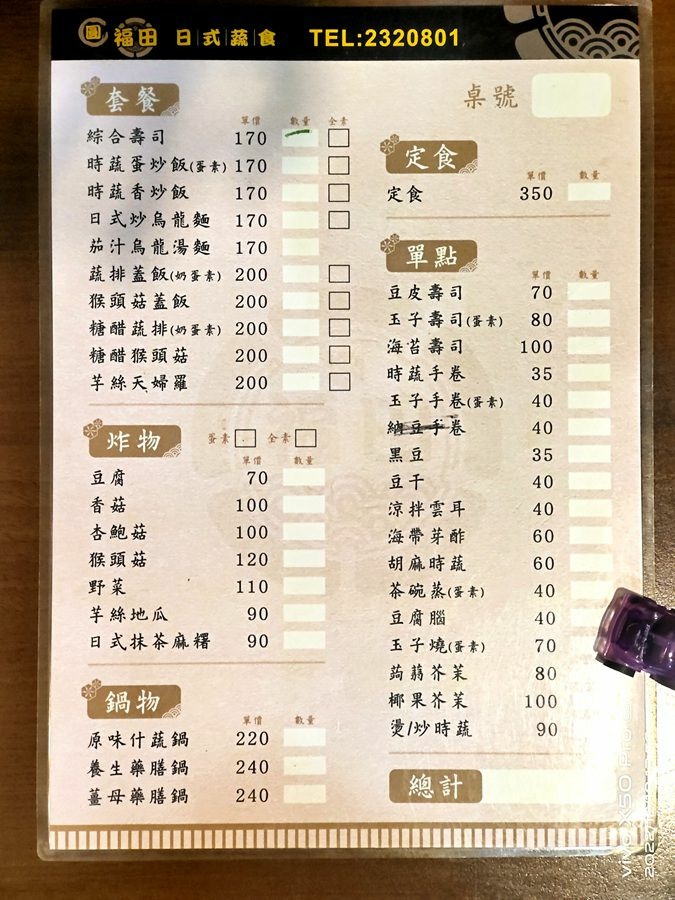 圓 福田 日式蔬食 TEL:2320801
桌號
套餐
單價 數量 全素
綜合壽司 170
時蔬蛋炒飯(蛋素) 170
時蔬香炒飯 170
日式炒烏龍麵 170
茄汁烏龍湯麵 170
蔬排蓋飯(奶蛋素) 200
猴頭菇蓋飯 200
糖醋蔬排(奶蛋素) 200
糖醋猴頭菇 200
芋絲天婦羅 200
炸物 蛋素 全素
單價 數量
豆腐 70
香菇 100
杏鮑菇 100
猴頭菇 120
野菜 110
芋絲地瓜 90
日式抹茶麻糬 90
鍋物
單價 數量
原味什蔬鍋 220
養生藥膳鍋 240
薑母藥膳鍋 240
定食
單價 數量
定食 350
單點
單價 數量
豆皮壽司 70
玉子壽司(蛋素) 80
海苔壽司 100
時蔬手卷 35
玉子手卷(蛋素) 40
納豆手卷 40
黑豆 35
豆干 40
涼拌雲耳 40
海帶芽酢 60
胡麻時蔬 60
茶碗蒸(蛋素) 40
豆腐腦 40
玉子燒(蛋素) 70
蒟蒻芥茉 80
椰果芥茉 100
燙/炒時蔬 90
總計